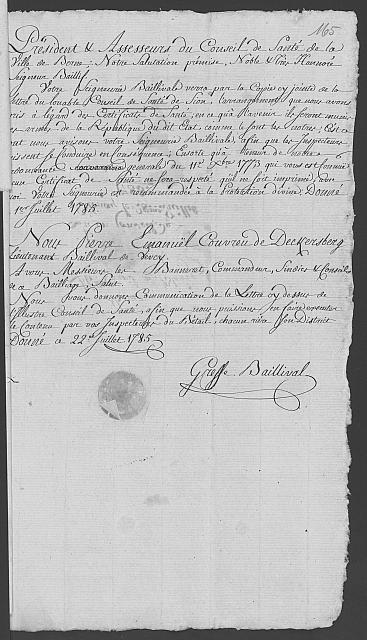 165
Président & Assesseurs du Conseil de Santé de la
Ville de Berne; Notre Salutation prémise, Noble & très Honnoré
Seigneur Baillif
Votre Seigneurie Baillivale verra par la Copie cy jointe de la
lettre du louable Conseil de Santé de Sion, l'arrangement que nous avons
pris à l'égard des Certificats de Santé, en a qu'à l'avenir ils seront munis
armes de la République du dit Etat comme le sont les notres; C'est
nous avisons votre Seigneurie Baillivale, afin que les Inspecteurs
puissent se conduire en conséquence; Ensorte qu'à teneur de notre
ordonnance generale du 11e Xbre 1773 qui vous est connue
aucun Certificat de Santé ne soit respecté qui ne soit imprimé,
Votre Seigneurie est recommandée à la Protection divine, Donné
1er Juillet 1785.
Nous Pierre Emanuël Couvreu de Deckersberg
Lieutenant Baillival de Vevey
A vous Messieurs les Banneret, Commandeur, Sindics & Conseils
Bailliage, Salut
Nous vous donnons Communication de la Lettre cy dessus de
l'Illustre Conseil de Santé, afin que vous puissiez en faire executer
le Contenu par vos Inspecteurs du Bétail, chacun rière son District
Donné a 22e Juillet 1785
Greffe Baillival